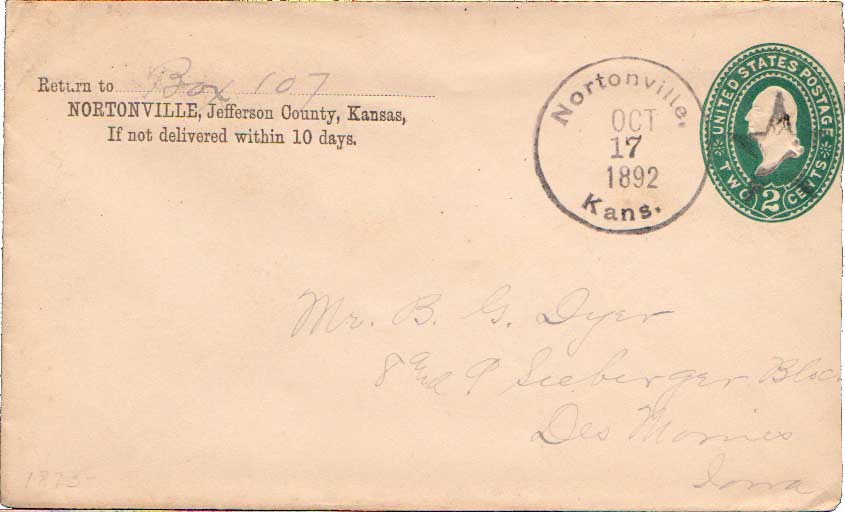 Return to Box 107
NORTONVILLE, Jefferson County, Kansas,
If not delivered within 10 days.
Nortonville,
OCT
17
1892
Kans.
UNITED STATES POSTAGE
TWO 2 CENTS
Mr. B. G. Dyer
8
Des Moines
Iowa